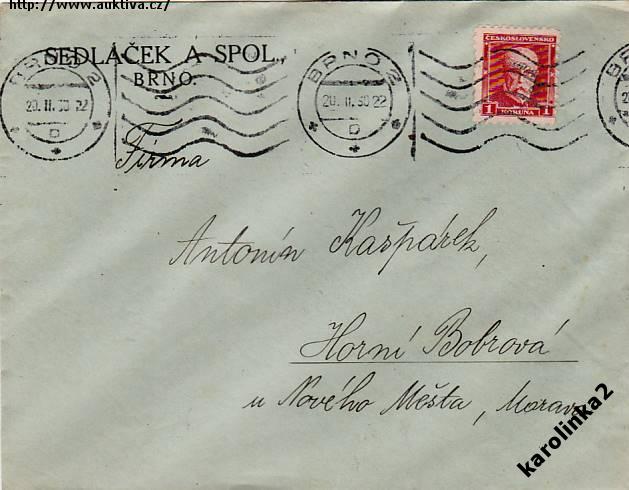 http://www.auktiva.cz/
SEDLÁČEK A SPOL.,
BRNO.
BRNO 2
20.II.30 22
D
BRNO 2
20.II.30 22
D
ČESKOSLOVENSKO
1 KORUNA 1
Firma
Antonín Kašpárek,
Horní Bobrová
u Nového Města, Morava
karolinka2